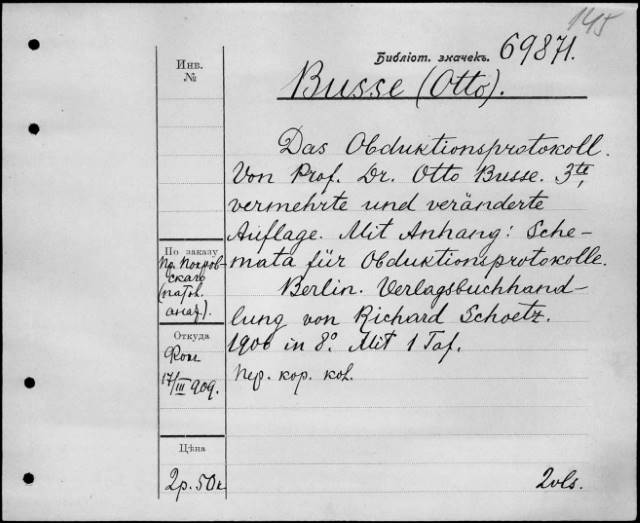 145
Библіот. значекъ. 69871.
Инв.
№
Busse (Otto).
Das Obduktionsprotokoll.
Von Prof. Dr. Otto Busse. 3te,
vermehrte und veränderte
Auflage. Mit Anhang: Sche-
mata für Obduktionsprotokolle.
Berlin. Verlagsbuchhand-
lung von Richard Schoetz.
1900 in 8º. Mit 1 Taf.
Пер. кор. кол.
По заказу
Пр. Покров-
скаго
(патол.
анат.).
Откуда
17/III 909.
Цѣна
2р. 50к
2vls.